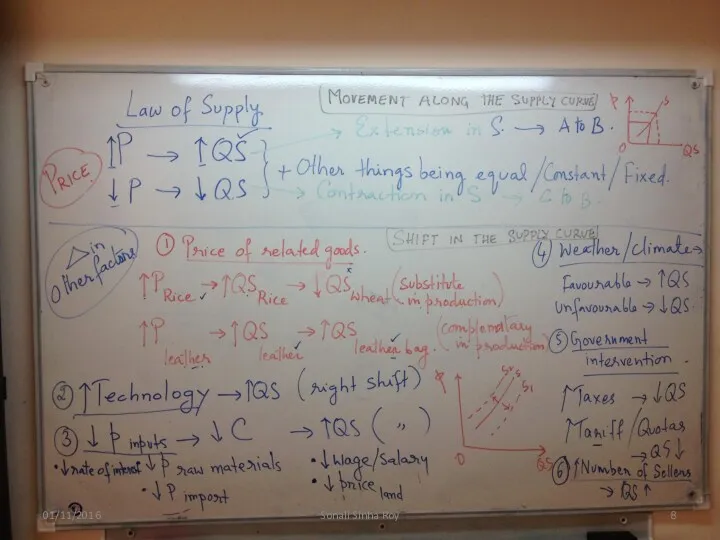 Law of Supply
MOVEMENT ALONG THE SUPPLY CURVE
PRICE
↑P → ↑QS
↓P → ↓QS
+ Other things being equal/Constant/Fixed.
→ Extension in S. → A to B.
→ Contraction in S → C to B.
P
S
O
QS
SHIFT IN THE SUPPLY CURVE
Δ in
Other factors
① Price of related goods.
↑P Rice → ↑QS Rice → ↓QS wheat (substitute
in production)
↑P leather → ↑QS leather → ↑QS leather bag. (complemetary
in production)
② ↑Technology → ↑QS (right shift)
③ ↓P inputs → ↓C → ↑QS ( " )
• ↓rate of interest ↓P raw materials
• ↓P import
• ↓Wage/Salary
• ↓price land
P
S2
S
S1
O
QS
④ Weather/climate→
Favourable → ↑QS
Unfavourable → ↓QS
⑤ Government
intervention.
↑Taxes → ↓QS
↑Tariff/Quotas
→ QS↓
⑥ ↑Number of Sellers
→ QS↑
01/11/2016
Sonali Sinha Roy
8